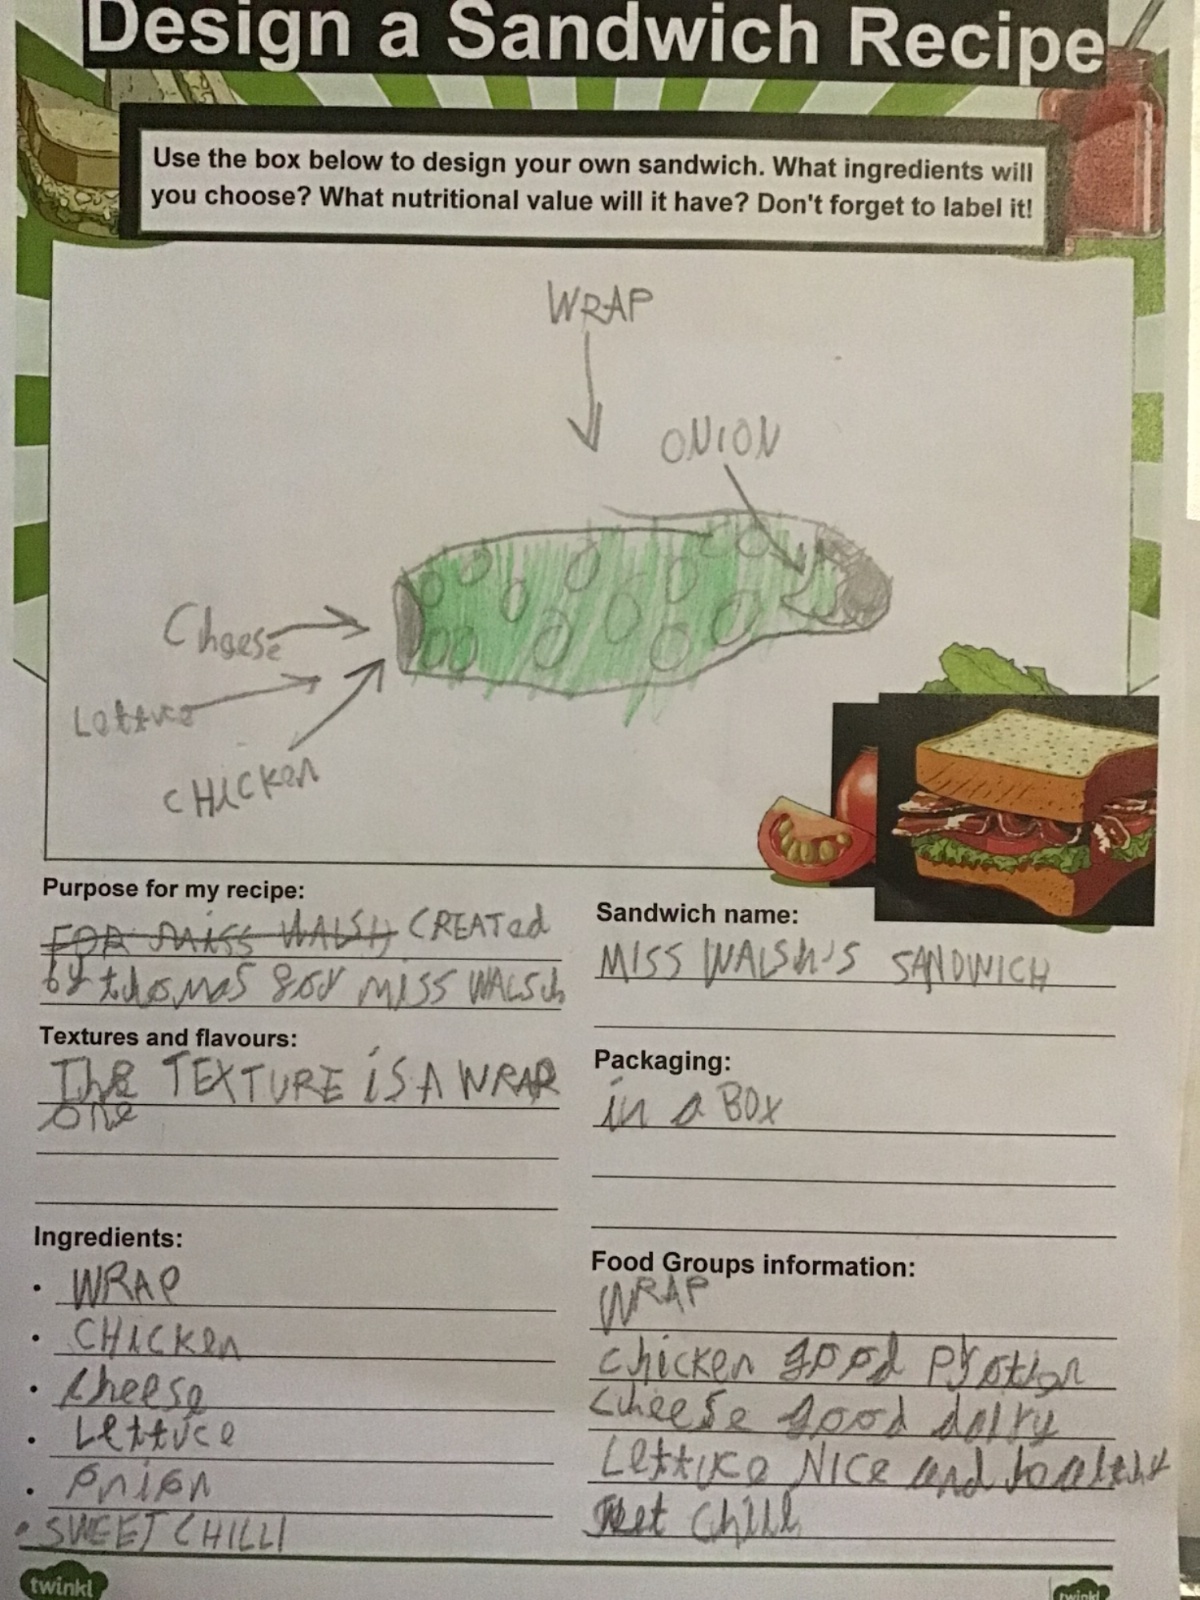 Design a Sandwich Recipe
Use the box below to design your own sandwich. What ingredients will
you choose? What nutritional value will it have? Don't forget to label it!
WRAP
ONION
Cheese
Lettuce
CHICKEN
Purpose for my recipe:
FOR MISS WALSH CREATED
by thomas for MISS WALSch
Textures and flavours:
The TEXTURE iS A WRAP
one
Ingredients:
• WRAP
• CHICKen
• cheese
• Lettuce
• onion
• SWEET CHILLI
Sandwich name:
MISS WALSh'S SANDWICH
Packaging:
in a BOX
Food Groups information:
WRAP
chicken good protien
cheese good dairy
Lettuce NICE and
chilli
twinkl
twinkl